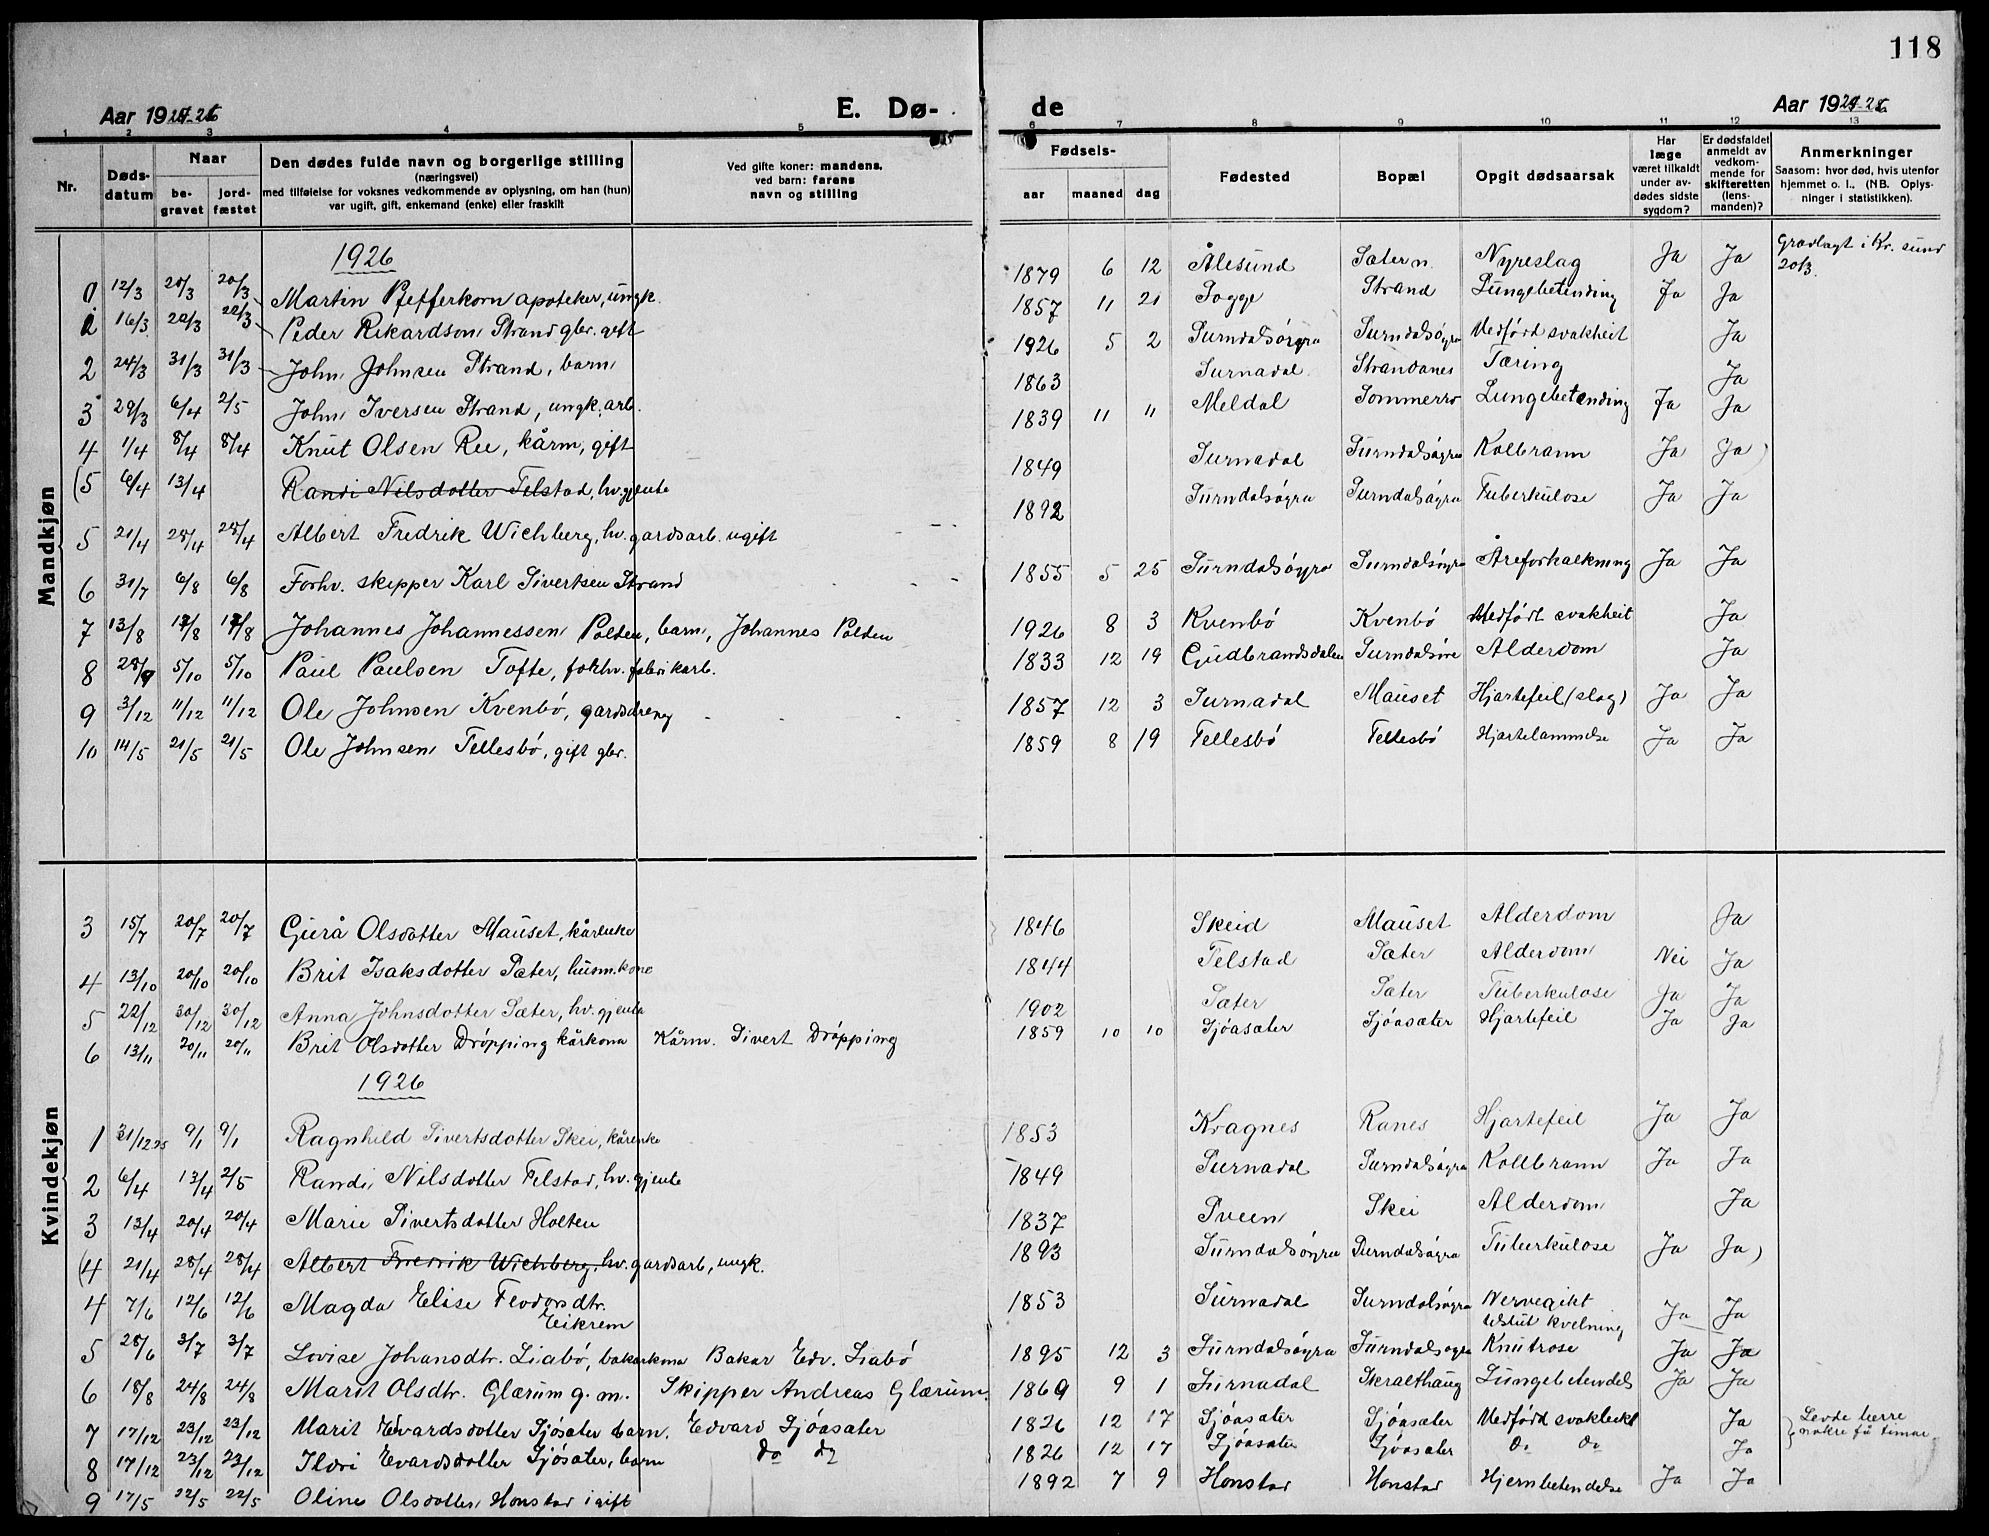 118
Aar 1924-26 E. Dø- de Aar 1924-26
1 2 3 4 5 6 7 8 9 10 11 12 13
Nr. Døds-datum Naar be-gravet jord-fæstet Den dødes fulde navn og borgerlige stilling (næringsvei) med tilføielse for voksnes vedkommende av oplysning, om han (hun) var ugift, gift, enkemand (enke) eller fraskilt Ved gifte koner: mandens, ved barn: farens navn og stilling Fødsels- aar maaned dag Fødested Bopæl Opgit dødsaarsak Har læge været tilkaldt under av-dødes sidste sygdom? Er dødsfaldet anmeldt av vedkom-mende for skifteretten (lens-manden)? Anmerkninger Saasom: hvor død, hvis utenfor hjemmet o. l., (NB. Oplys-ninger i statistikken).
Mandkjøn
1926
1 12/3 20/3 20/3 Martin Pfefferkorn apoteker, ungk. 1879 6 12 Ålesund Sæter n. Nyreslag Ja Ja Gravlagt i Kr. sund 20/3.
2 16/3 22/3 22/3 Peder Rikardson Strand gbr. gift 1857 11 21 Sogge Strand Lungebetending Ja Ja
2 24/3 31/3 31/3 John Johnsen Strand, barn 1926 5 2 Surndalsøyra Surndalsøyra Medfødt svakheit Ja
3 29/3 6/4 2/5 John Iversen Strand, ungk. arb. 1863 Surnadal Strandanes Tæring Ja
4 1/4 8/4 8/4 Knut Olsen Ree, kårm, gift 1839 11 11 Meldal Sommerro Lungebetending Ja Ja
(5 6/4 13/4 Randi Nilsdotter Telstad, hv. gjente 1849 Surnadal Surndalsøyra Kolbrann Ja Ja)
5 21/4 28/4 28/4 Albert Fredrik Wichberg, hv. gardsarb. ugift 1892 Surndalsøyra Surndalsøyra Tuberkulose Ja Ja
6 31/7 6/8 6/8 Forhv. skipper Karl Sivertsen Strand 1855 5 25 Surndalsøyra Surndalsøyra Åreforkalkning Ja Ja
7 13/8 17/8 17/8 Johannes Johannessen Polden, barn, Johannes Polden 1926 8 3 Kvenbø Kvenbø Medfødt svakheit Ja
8 28/9 5/10 5/10 Paul Paulsen Tofte, forhv. fabrikarb. 1833 12 19 Gudbrandsdalen Surndalsøre Alderdom Ja
9 3/12 11/12 11/12 Ole Johnsen Kvenbø, gardsdreng 1857 12 3 Surnadal Mauset Hjartefeil (slag) Ja Ja
10 14/5 21/5 21/5 Ole Johnsen Tellesbø, gift gbr. 1859 8 19 Tellesbø Tellesbø Hjartelammelse Ja Ja
Kvindekjøn
3 15/7 20/7 20/7 Gurå Olsdotter Mauset, kårenke 1846 Skeid Mauset Alderdom Ja
4 13/10 20/10 20/10 Brit Isaksdotter Sæter, husm. kone 1844 Telstad Sæter Alderdom Nei Ja
5 22/12 30/12 30/12 Anna Johnsdotter Sæter, hv. gjente 1902 Sæter Sæter Tuberkulose Ja Ja
6 13/11 20/11 20/11 Brit Olsdotter Drøpping kårkona Kårm. Sivert Drøpping 1859 10 10 Sjøasæter Sjøasæter Hjartefeil Ja Ja
1926
1 31/12.25 9/1 9/1 Ragnhild Sivertsdotter Skei, kårenke 1853 Kragnes Ranes Hjartefeil Ja Ja
2 6/4 13/4 2/5 Randi Nilsdotter Telstad, hv. gjente 1849 Surnadal Surndalsøyra Kollbrann Ja Ja
3 13/4 20/4 20/4 Marie Sivertsdotter Holten 1837 Sveen Skei Alderdom Ja
(4 21/4 28/4 28/4 Albert Fredrik Wichberg, hv. gardsarb, ungk. 1893 Surndalsøyra Surndalsøyra Tuberkulose Ja Ja)
4 7/6 12/6 12/6 Magda Elise Feodorsdtr. Eikrem 1853 Surnadal Surndalsøyra Nervegikt tilslut kvelning Ja Ja
5 28/6 3/7 3/7 Lovise Johansdtr. Liabø, bakarkona Bakar Edv. Liabø 1895 12 3 Surndalsøyra Surndalsøyra Knutrose Ja Ja
6 18/8 24/8 24/8 Marit Olsdtr. Glærum g. m. Skipper Andreas Glærum. 1869 9 1 Surnadal Skralthaug Lungebetendels Ja Ja
7 17/12 23/12 23/12 Marit Edvardsdotter Sjøsæter barn. Edvard Sjøasæter 1826 12 17 Sjøasæter Sjøasæter Medfødd svakleikt Ja Levde berre nokre få timar.
8 17/12 23/12 23/12 Ildri Evardsdotter Sjøsæter, barn do do 1826 12 17 Sjøasæter Sjøasæter Do Do Ja
9 17/5 22/5 22/5 Oline Olsdotter Honstad i gift 1892 7 9 Honstad Honstad Hjernbetendelse Ja Ja